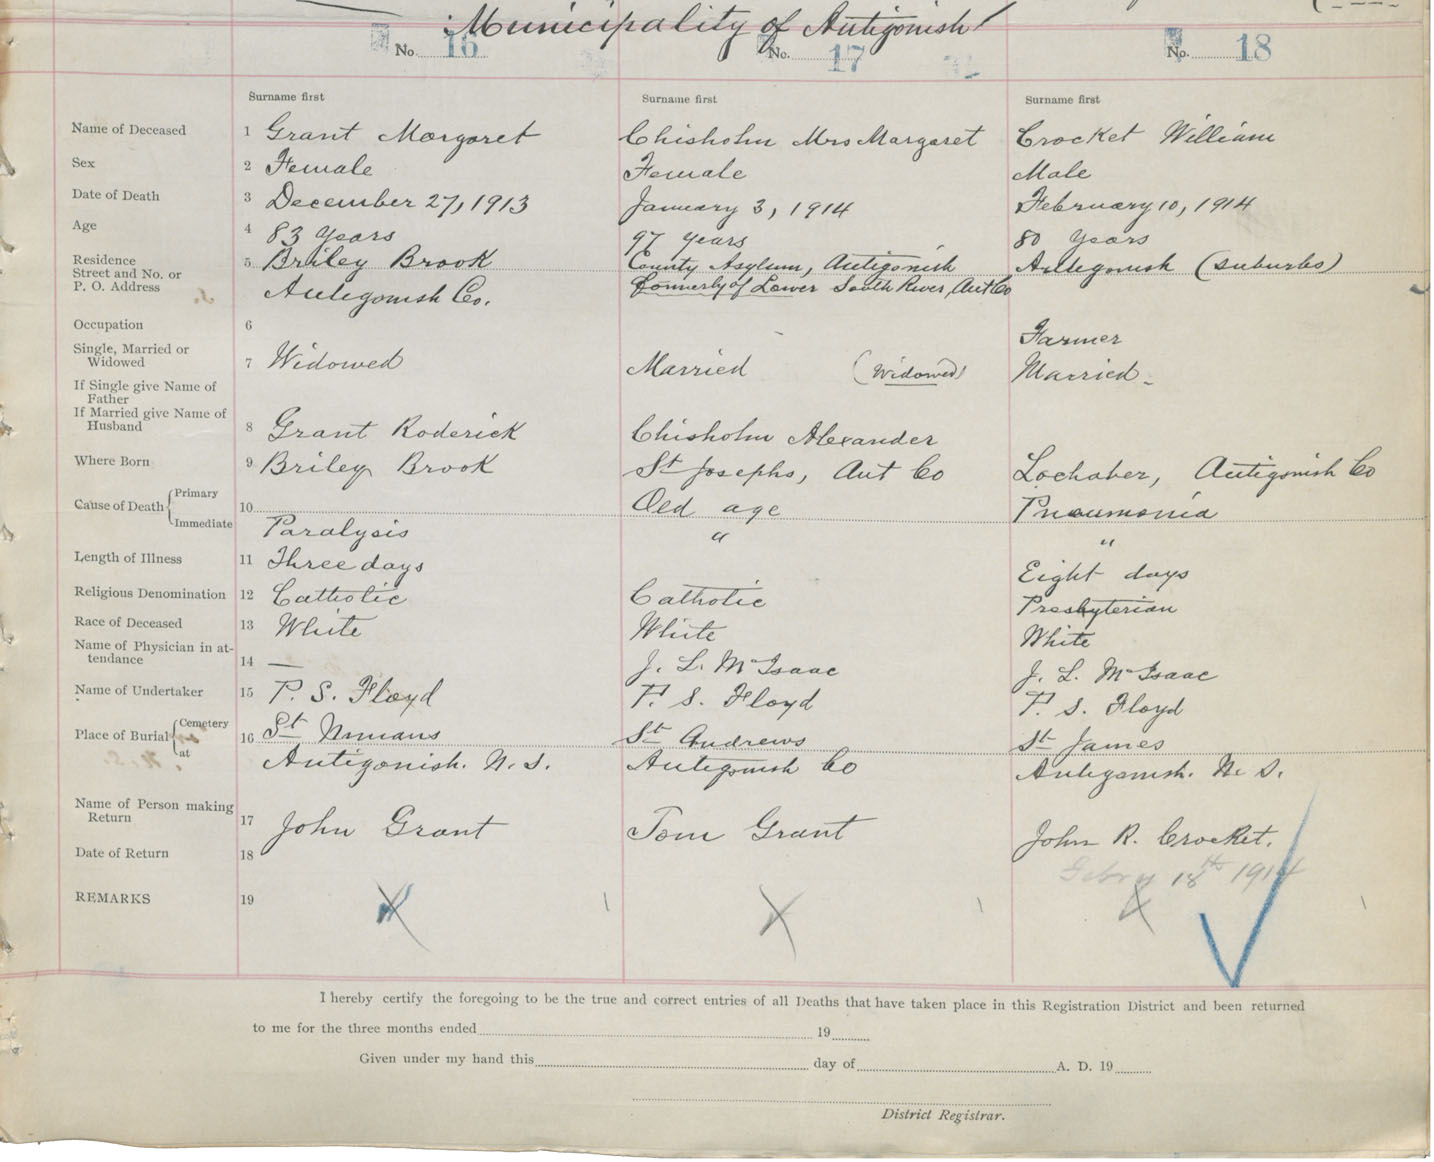 Municipality of Antigonish
No. 16 No. 17 No. 18
Surname first Surname first Surname first
Name of Deceased 1 Grant Margaret Chisholm Mrs Margaret Crocket William
Sex 2 Female Female Male
Date of Death 3 December 27, 1913 January 3, 1914 February 10, 1914
Age 4 83 years 97 years 80 years
Residence 5 Briley Brook County Asylum, Antigonish Antigonish (suburbs)
Street and No. or
P. O. Address Antigonish Co. formerly of Lower South River, Ant Co
Occupation 6 Farmer
Single, Married or
Widowed 7 Widowed Married (Widowed) Married
If Single give Name of
Father
If Married give Name of
Husband 8 Grant Roderick Chisholm Alexander
Where Born 9 Briley Brook St Josephs, Ant Co Lochaber, Antigonish Co
Cause of Death Primary 10 Old age Pneumonia
Immediate Paralysis " "
Length of Illness 11 Three days Eight days
Religious Denomination 12 Catholic Catholic Presbyterian
Race of Deceased 13 White White White
Name of Physician in at-
tendance 14 — J. L. McIsaac J. L. McIsaac
Name of Undertaker 15 P. S. Floyd P. S. Floyd P. S. Floyd
Place of Burial Cemetery 16 St Ninians St Andrews St James
at Antigonish. N. S. Antigonish Co Antigonish. N. S.
Name of Person making
Return 17 John Grant Tom Grant John R. Crocket.
Date of Return 18 Febry 18th 1914
REMARKS 19
I hereby certify the foregoing to be the true and correct entries of all Deaths that have taken place in this Registration District and been returned
to me for the three months ended 19
Given under my hand this day of A. D. 19
District Registrar.